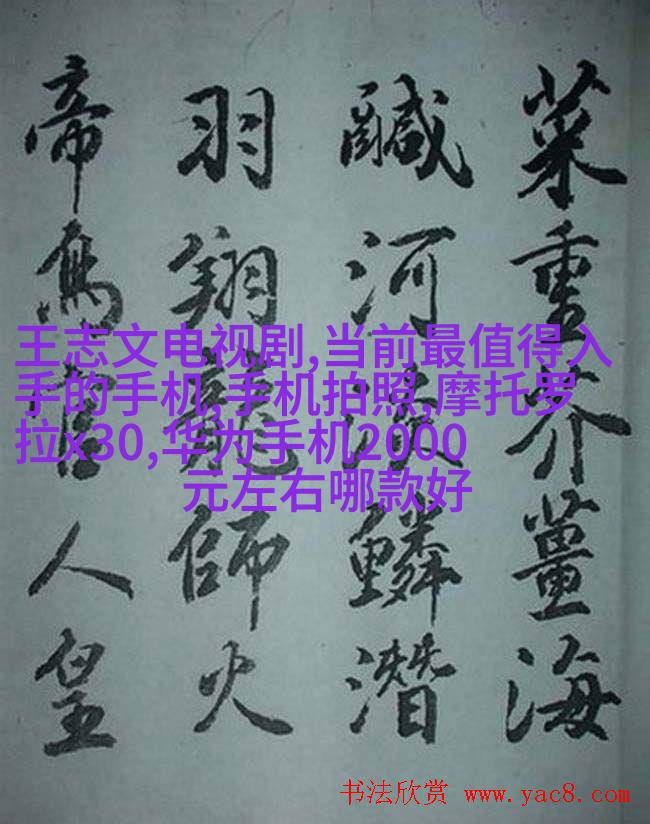 菜重芥薑海
鹹河淡鱗潛
羽翔龍師火
帝鳥官人皇
王志文电视剧,当前最值得入
手的手机,手机拍照,摩托罗
拉x30,华为手机2000
元左右哪款好
书法欣赏 www.yac8.com